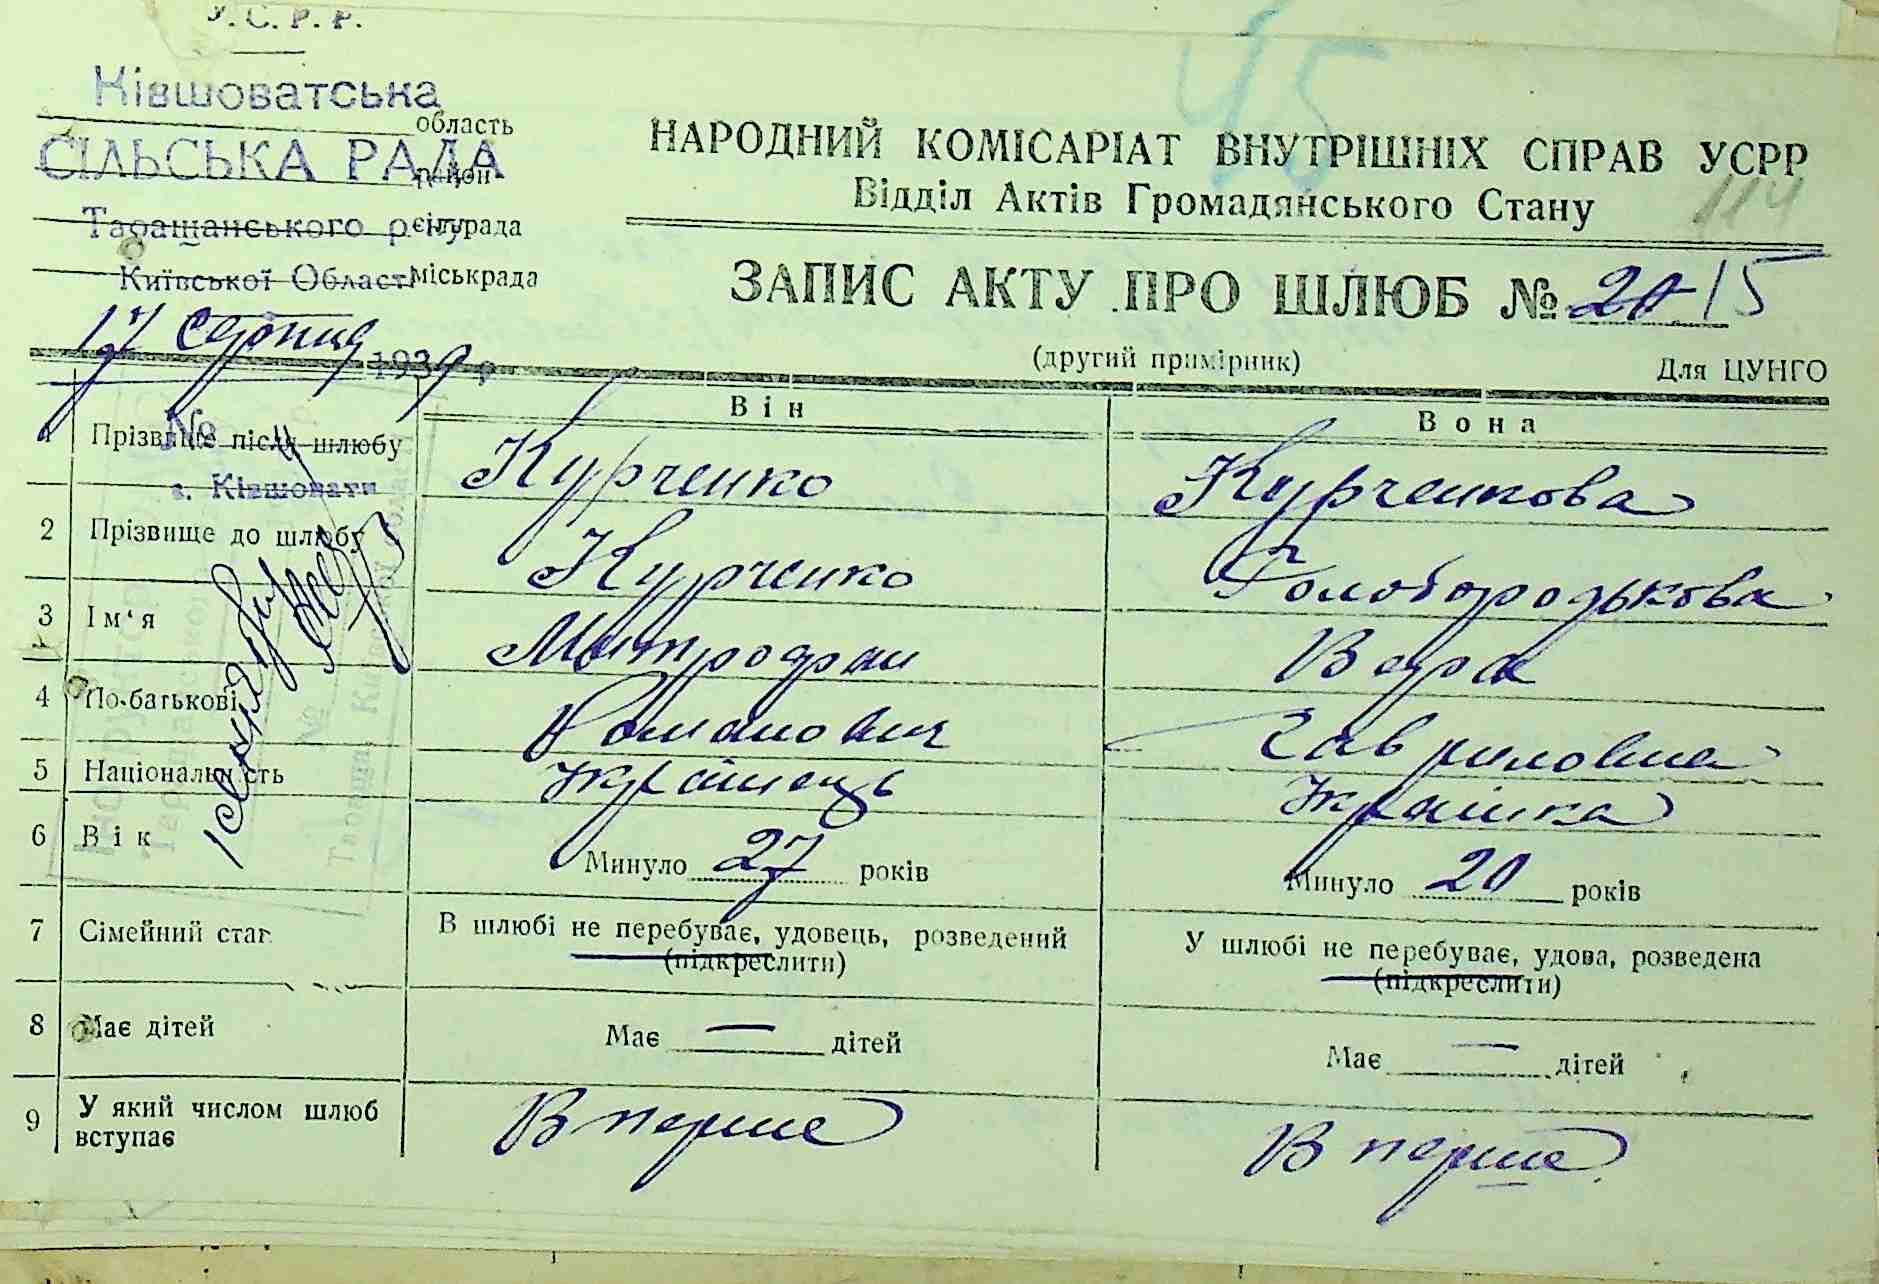 У. С. Р. Р.
45
Ківшоватська
область
СІЛЬСЬКА РАДА
район
Таращанського р-ну
сільрада
Київської Області
міськрада
17 серпня 1937 р
№
с. Ківшовати
НАРОДНИЙ КОМІСАРІАТ ВНУТРІШНІХ СПРАВ УСРР
Відділ Актів Громадянського Стану
114
ЗАПИС АКТУ ПРО ШЛЮБ № 20 15
(другий примірник)
Для ЦУНГО
Він
Вона
1 Прізвище після шлюбу Курченко Курченкова
2 Прізвище до шлюбу Курченко Голобородькова
3 Ім'я Митрофан Вера
4 По-батькові Романович Гавриловна
5 Національність Українець Українка
6 Вік Минуло 27 років Минуло 20 років
7 Сімейний стан В шлюбі не перебуває, удовець, розведений У шлюбі не перебуває, удова, розведена
(підкреслити) (підкреслити)
8 Має дітей Має — дітей Має — дітей
9 У який числом шлюб Вперше Вперше
вступає